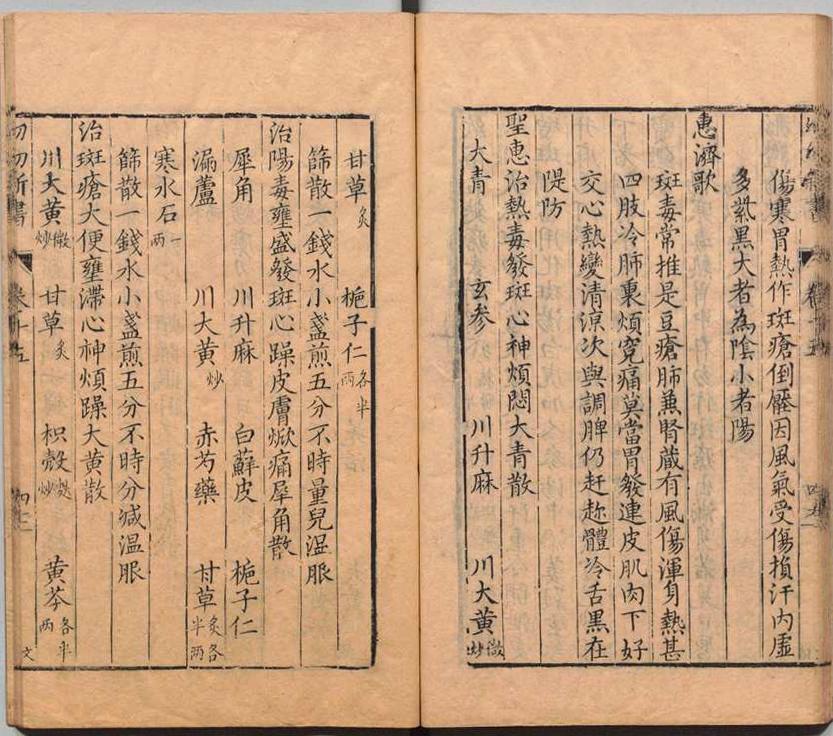 傷寒胃熱作斑瘡倒黶因風氣受傷損汗内虛
多紫黑大者為陰小者陽
惠濟歌
斑毒常推是豆瘡肺兼腎藏有風傷渾身熱甚
四肢冷肺裏煩寃痛莫當胃發連皮肌肉下好
交心熱變清涼次與調脾仍赶趂體冷舌黒在
隄防
聖惠治熱毒發斑心神煩悶大青散
大青 玄參 川升麻 川大黄微炒
甘草炙 梔子仁各半兩
篩散一錢水小盞煎五分不時量兒温服
治陽毒壅盛發斑心躁皮膚焮痛犀角散
犀角 川升麻 白蘚皮 梔子仁
漏蘆 川大黄炒 赤芍藥 甘草炙各半兩
寒水石一兩
篩散一錢水小盞煎五分不時分减温服
治斑瘡大便壅滯心神煩躁大黄散
川大黄微炒 甘草炙 枳殼麩炒 黄芩各半兩
幼幼新書 卷十五